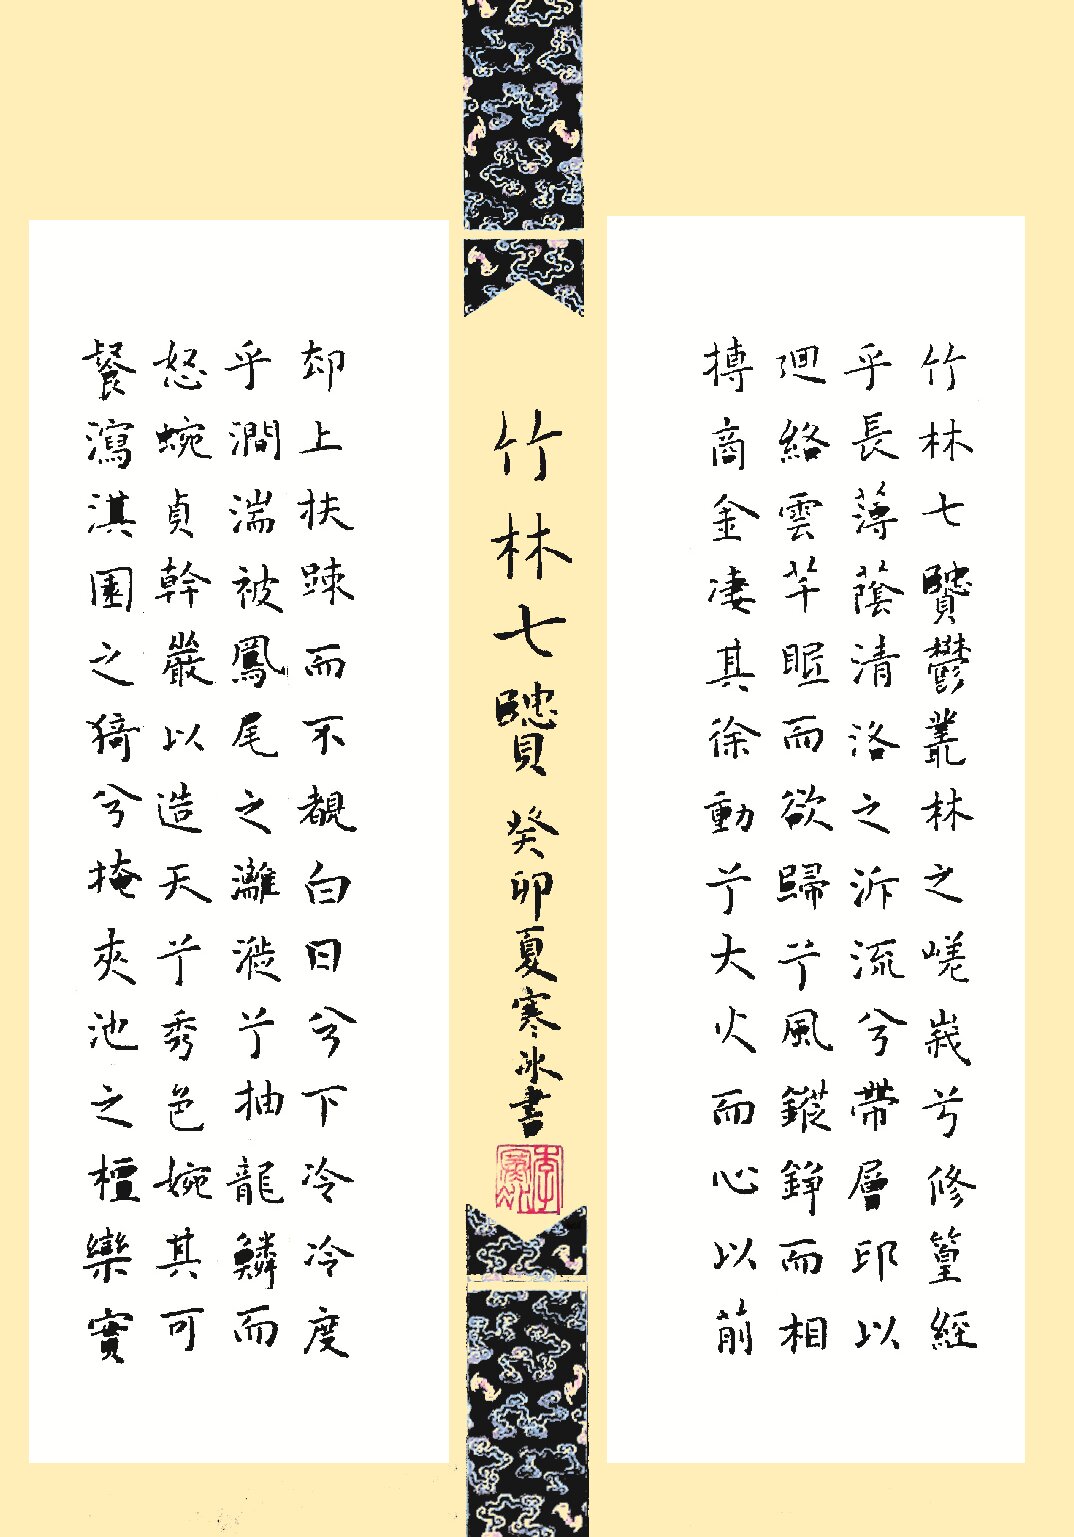 竹林七贒鬱叢林之嵯峩兮修篁經
乎長薄蔭清洛之泝流兮帶層印以
廻絡雲芊眠而欲歸兮風鏦錚而相
搏商金凄其徐動兮大火而心以前
竹林七贒 癸卯夏寒冰書
却上扶踈而不覩白日兮下冷冷度
乎澗湍被鳳尾之灕漇兮抽龍鱗而
怒蜿貞幹巖以造天兮秀色婉其可
餐瀉淇園之猗兮掩夾池之檀欒實